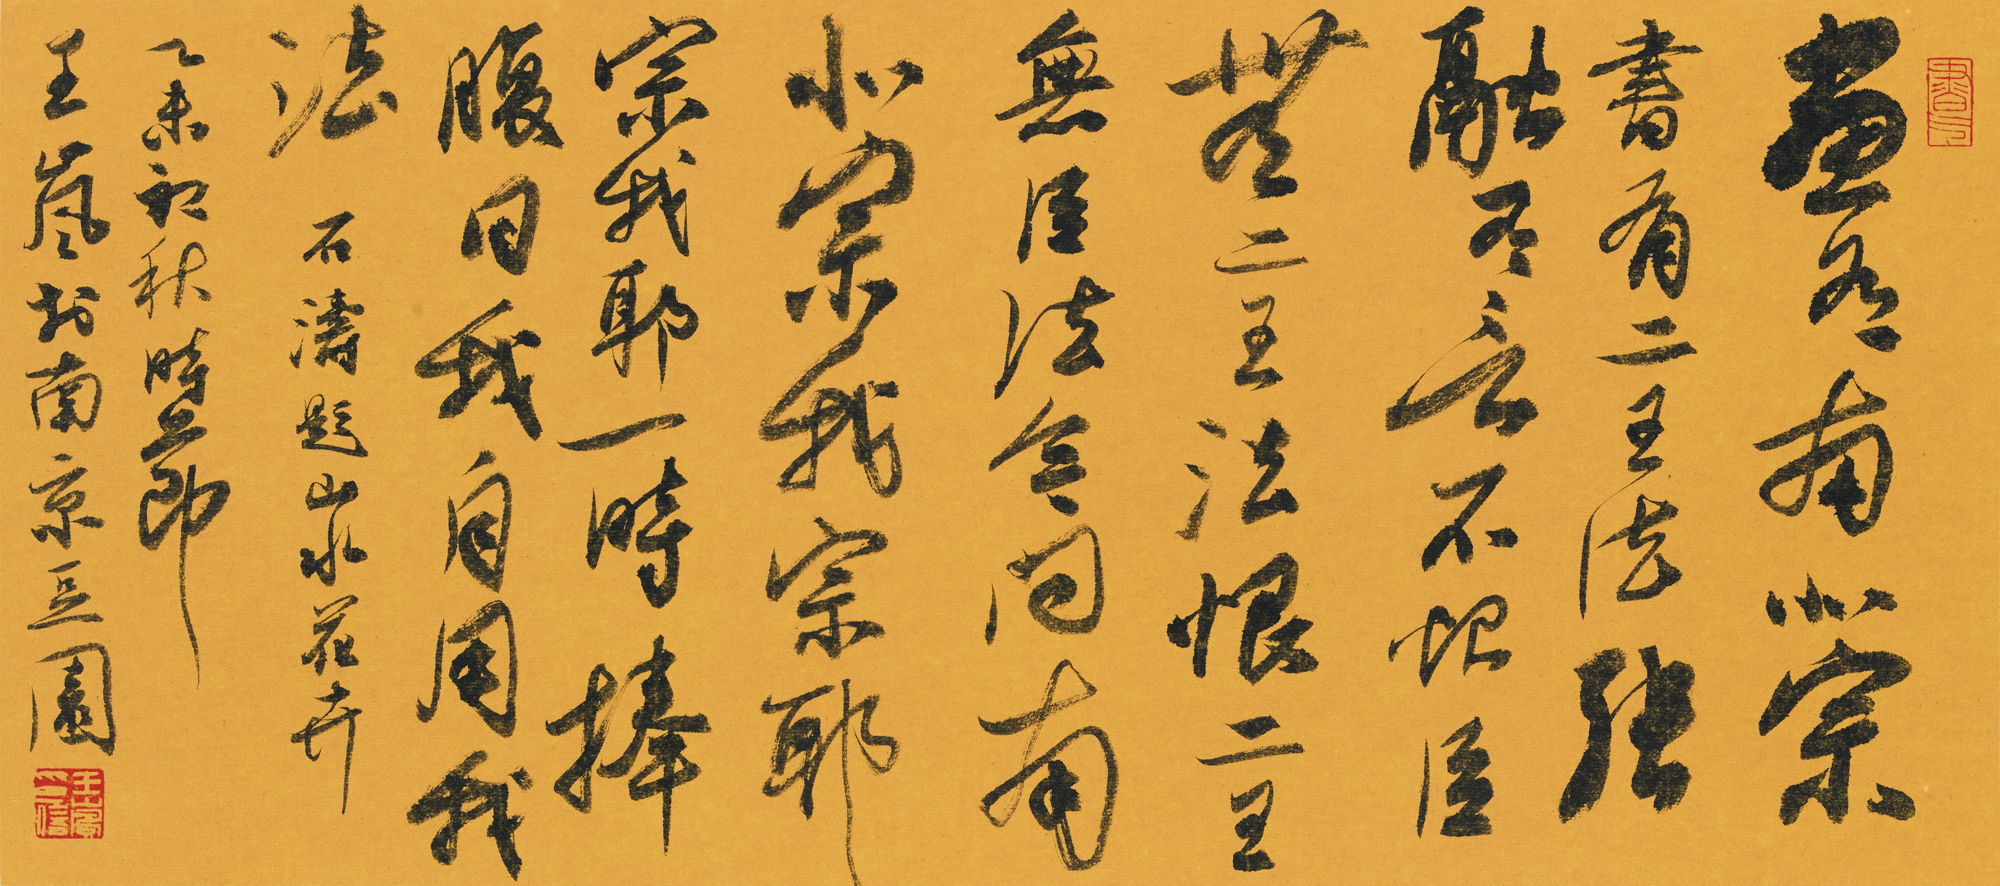 畫有南北宗
書有二王法張
融有言不恨臣
無二王法恨二王
無臣法今問南
北宗我宗耶
宗我耶一時捧
腹曰我自用我
法 石濤題山水花卉
乙未初秋時節
王嵐於南京豆園